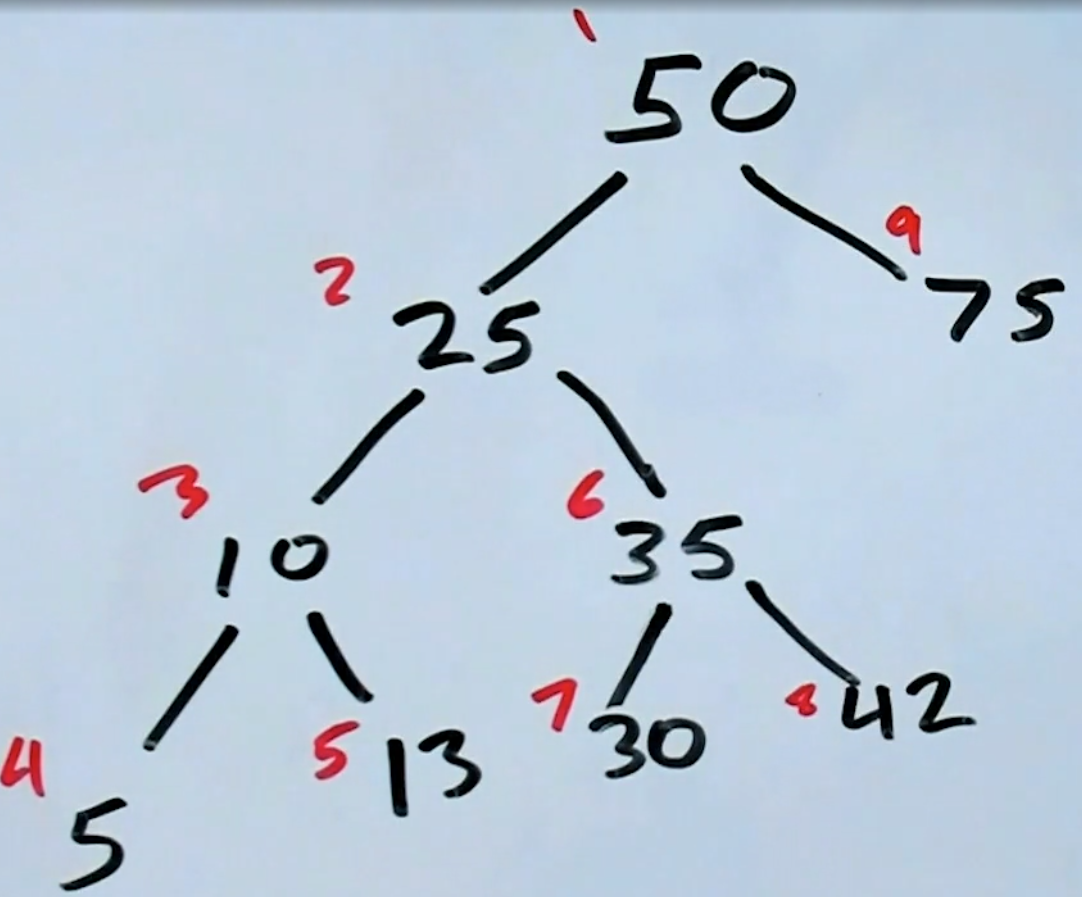 1
50
9
75
2
25
3
10
6
35
4
5
5
13
7
30
8
42